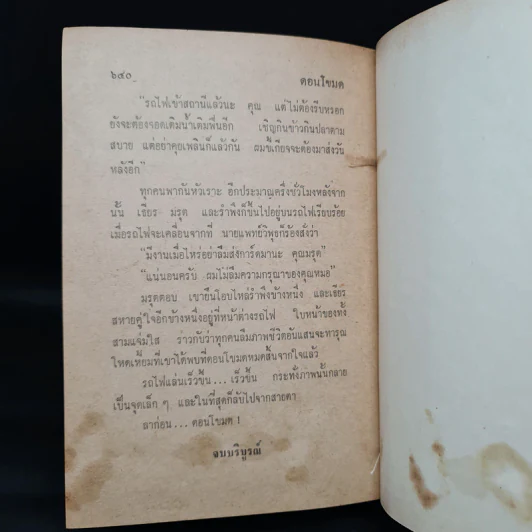 ๖๔๐
ดอนโขมด
“รถไฟเข้าสถานีแล้วนะ คุณ แต่ไม่ต้องรีบหรอก
ยังจะต้องจอดเติมน้ำเติมฟืนอีก เชิญกินข้าวกินปลาตาม
สบาย แต่อย่าคุยเพลินก็แล้วกัน ผมขี้เกียจจะต้องมาส่งวัน
หลังอีก”
ทุกคนพากันหัวเราะ อีกประมาณครึ่งชั่วโมงหลังจาก
นั้น เธียร มรุต และรำพึงก็ขึ้นไปอยู่บนรถไฟเรียบร้อย
เมื่อรถไฟจะเคลื่อนจากที่ นายแพทย์วิพุธก็ร้องสั่งว่า
“มีงานเมื่อไหร่อย่าลืมส่งการ์ดมานะ คุณมรุต”
“แน่นอนครับ ผมไม่ลืมความกรุณาของคุณหมอ”
มรุตตอบ เขายืนโอบไหล่รำพึงข้างหนึ่ง และเธียร
สหายคู่ใจอีกข้างหนึ่งอยู่ที่หน้าต่างรถไฟ ใบหน้าของทั้ง
สามแจ่มใส ราวกับว่าทุกคนลืมภาพชีวิตอันแสนจะทารุณ
โหดเหี้ยมที่เขาได้พบที่ดอนโขมดหมดสิ้นจากใจแล้ว
รถไฟแล่นเร็วขึ้น...เร็วขึ้น กระทั่งภาพนั้นกลาย
เป็นจุดเล็ก ๆ และในที่สุดก็ลับไปจากสายตา
ลาก่อน...ดอนโขมด !
จบบริบูรณ์